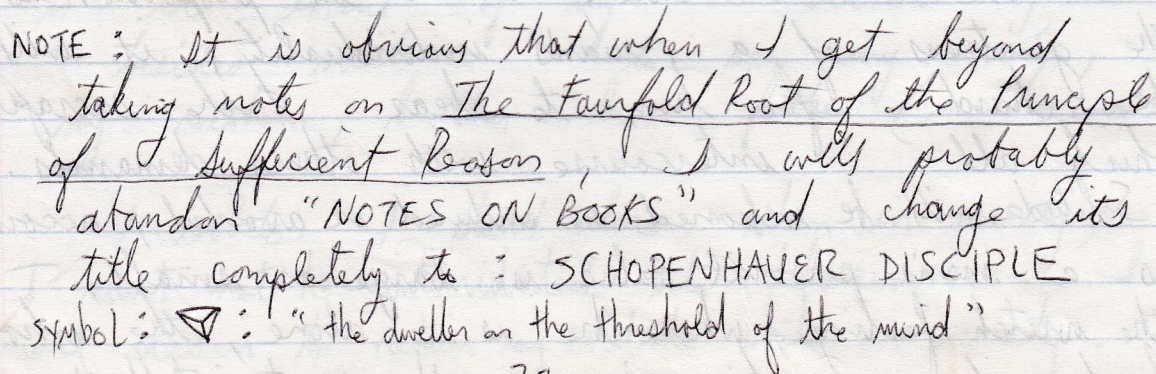 NOTE: It is obvious that when I get beyond
taking notes on The Fourfold Root of the Principle
of Sufficient Reason, I will probably
abandon "NOTES ON BOOKS" and change its
title completely to: SCHOPENHAUER DISCIPLE
SYMBOL: : "the dweller on the threshold of the mind"